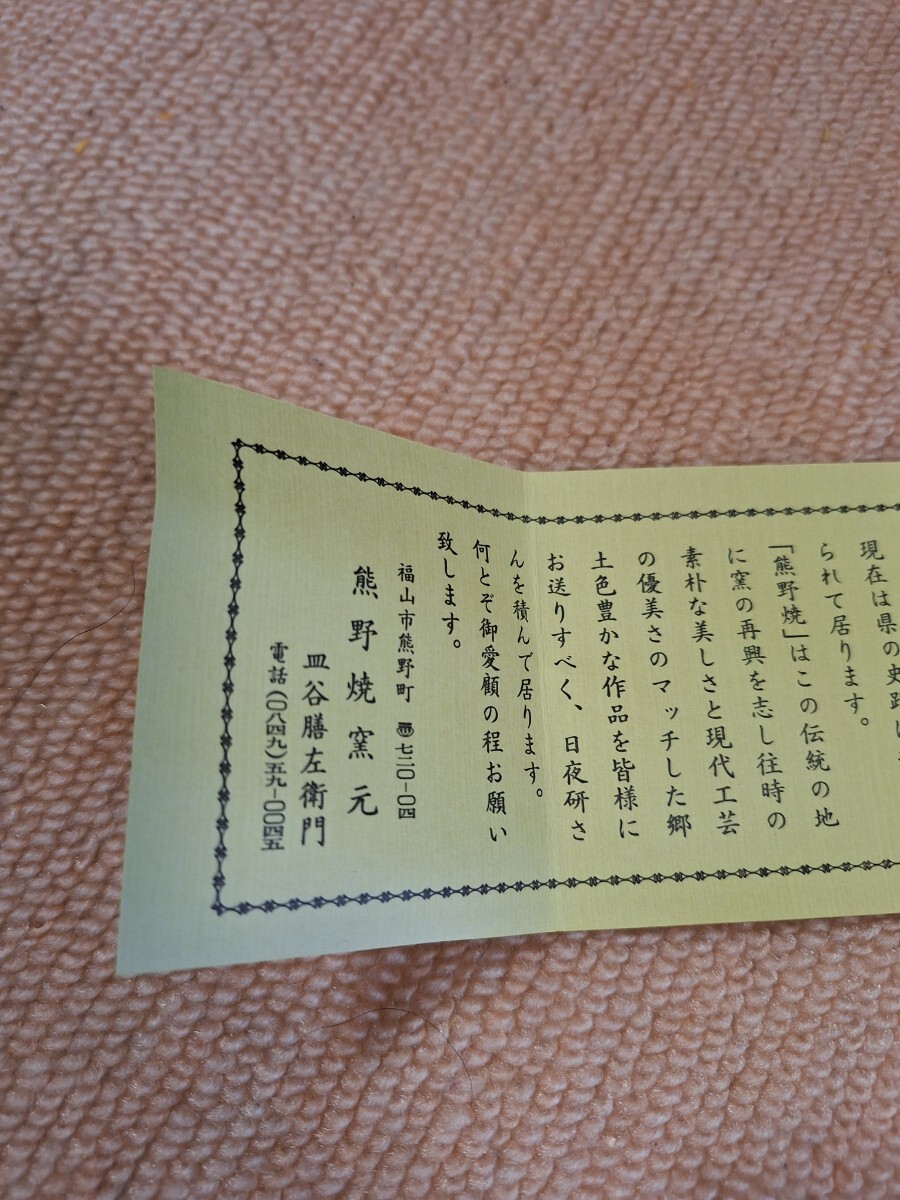 現在は県の史跡に
られて居ります。
「熊野焼」はこの伝統の地
に窯の再興を志し往時の
素朴な美しさと現代工芸
の優美さのマッチした郷
土色豊かな作品を皆様に
お送りすべく、日夜研さ
んを積んで居ります。
何とぞ御愛顧の程お願い
致します。
福山市熊野町 〠七二〇-〇四
熊野焼窯元
皿谷膳左衛門
電話(〇八四九)五九-〇〇四五